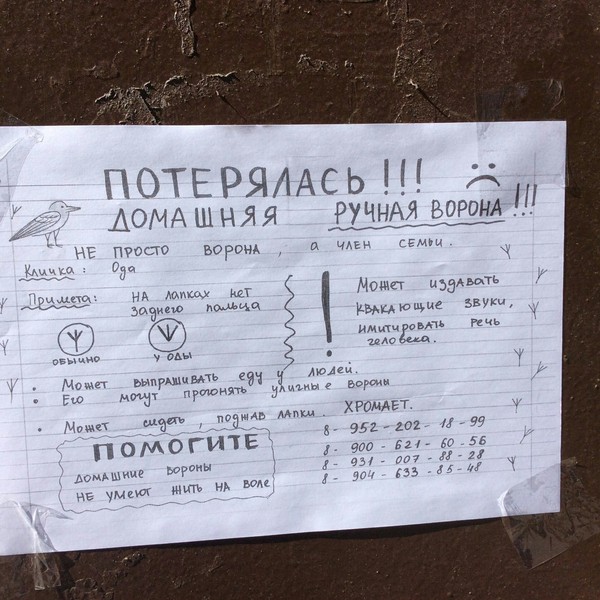 ПОТЕРЯЛАСЬ!!!
ДОМАШНЯЯ РУЧНАЯ ВОРОНА!!!
НЕ ПРОСТО ВОРОНА, а ЧЛЕН СЕМЬИ.
Кличка: Ода
Примета: НА ЛАПКАХ НЕТ
заднего пальца
ОБЫЧНО У ОДЫ
! Может издавать
квакающие звуки,
имитировать речь
человека.
• Может выпрашивать еду у людей.
• Его могут прогонять улизные вороны
• Может сидеть, поджав лапки. ХРОМАЕТ.
ПОМОГИТЕ
ДОМАШНИЕ ВОРОНЫ
НЕ УМЕЮТ ЖИТЬ НА ВОЛЕ
8-952-202-18-99
8-900-621-60-56
8-931-007-88-28
8-904-633-85-48